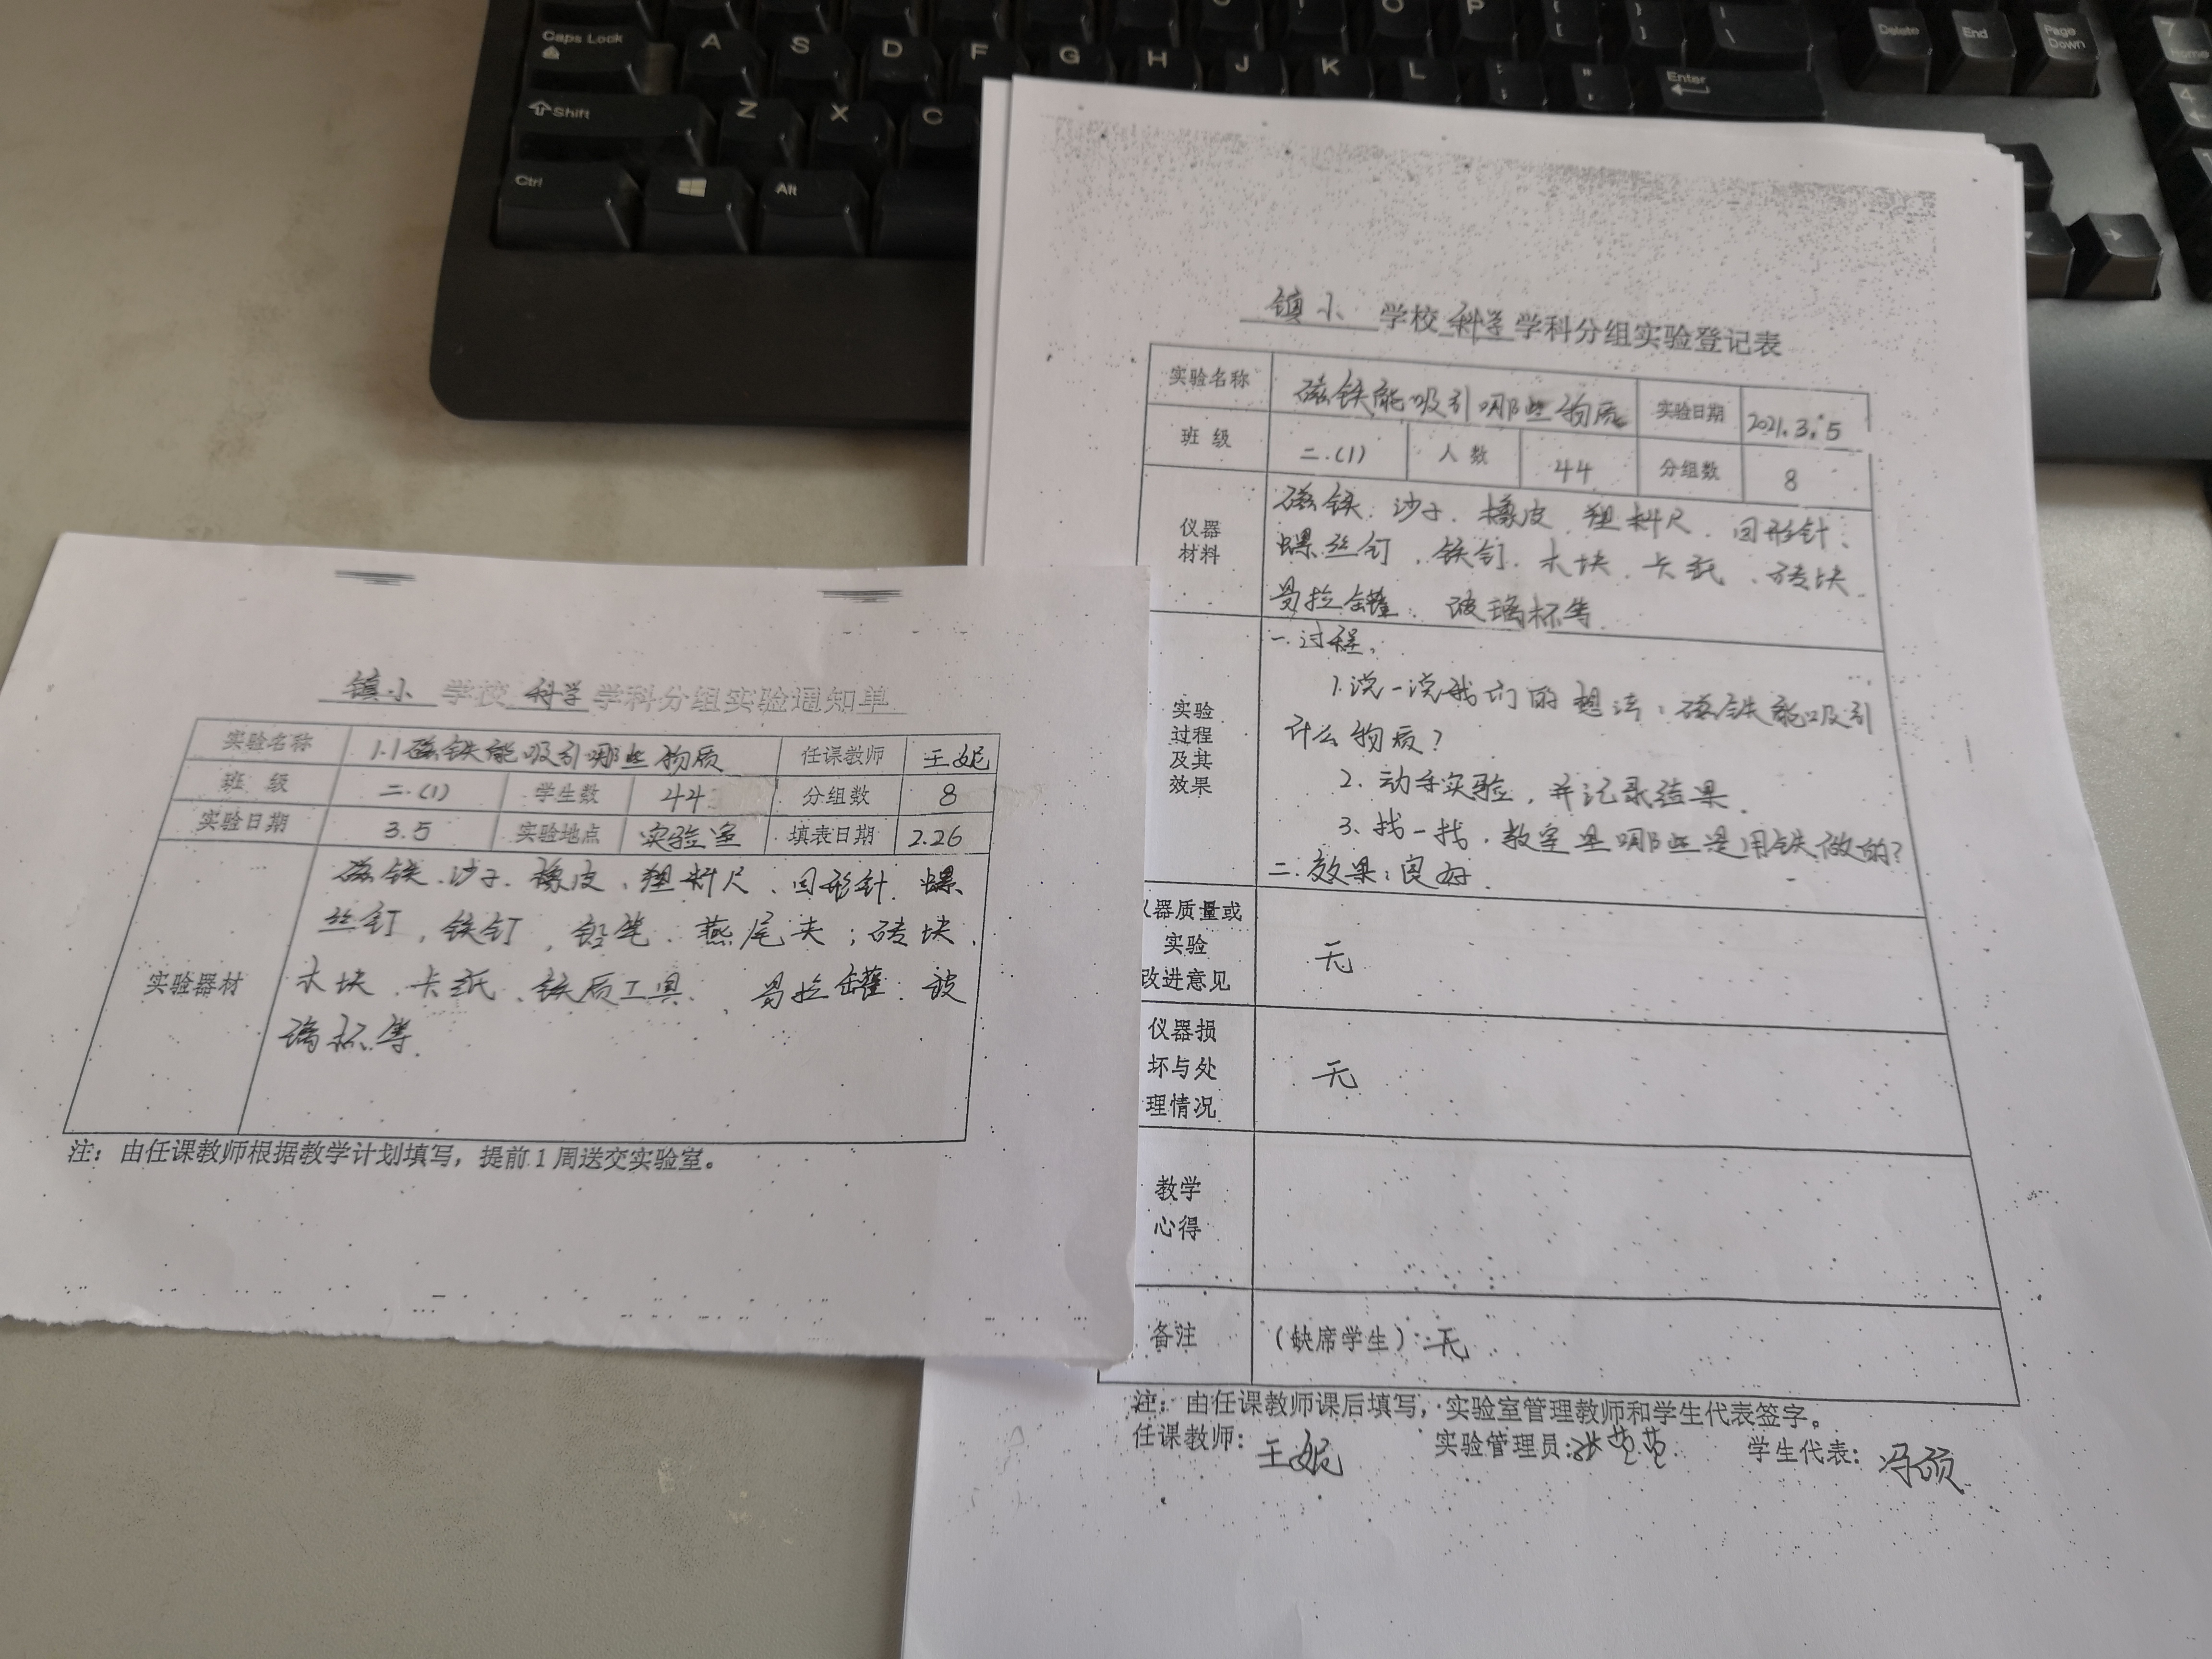 Caps Lock
A
S
D
F
G
H
J
K
L
O
P
Enter
Delete
End
Page Down
7
Home
4
Shift
Z
X
C
Ctrl
Alt
镇小 学校 科学 学科分组实验通知单
实验名称 1.1磁铁能吸引哪些物质 任课教师 王妮
班 级 二.(1) 学生数 44 分组数 8
实验日期 3.5 实验地点 实验室 填表日期 2.26
实验器材
磁铁、沙子、橡皮、塑料尺、回形针、螺
丝钉，铁钉，铅笔、燕尾夹；砖块、
木块、卡纸、铁质工具、易拉罐、玻
璃杯等.
注：由任课教师根据教学计划填写，提前1周送交实验室。
镇小 学校 科学 学科分组实验登记表
实验名称 磁铁能吸引哪些物质 实验日期 2021.3.5
班 级 二.(1) 人数 44 分组数 8
仪器
材料
磁铁、沙子、橡皮、塑料尺、回形针、
螺丝钉，铁钉、木块、卡纸、砖块、
易拉罐、玻璃杯等.
实验
过程
及其
效果
一.过程:
1.说一说我们的想法：磁铁能吸引
什么物质？
2.动手实验，并记录结果.
3.找一找，教室里哪些是用铁做的？
二.效果：良好.
仪器质量或
实验
改进意见
无
仪器损
坏与处
理情况
无
教学
心得
备注 （缺席学生）：无
注：由任课教师课后填写，实验室管理教师和学生代表签字。
任课教师：王妮 实验管理员：张莹莹 学生代表：冯硕